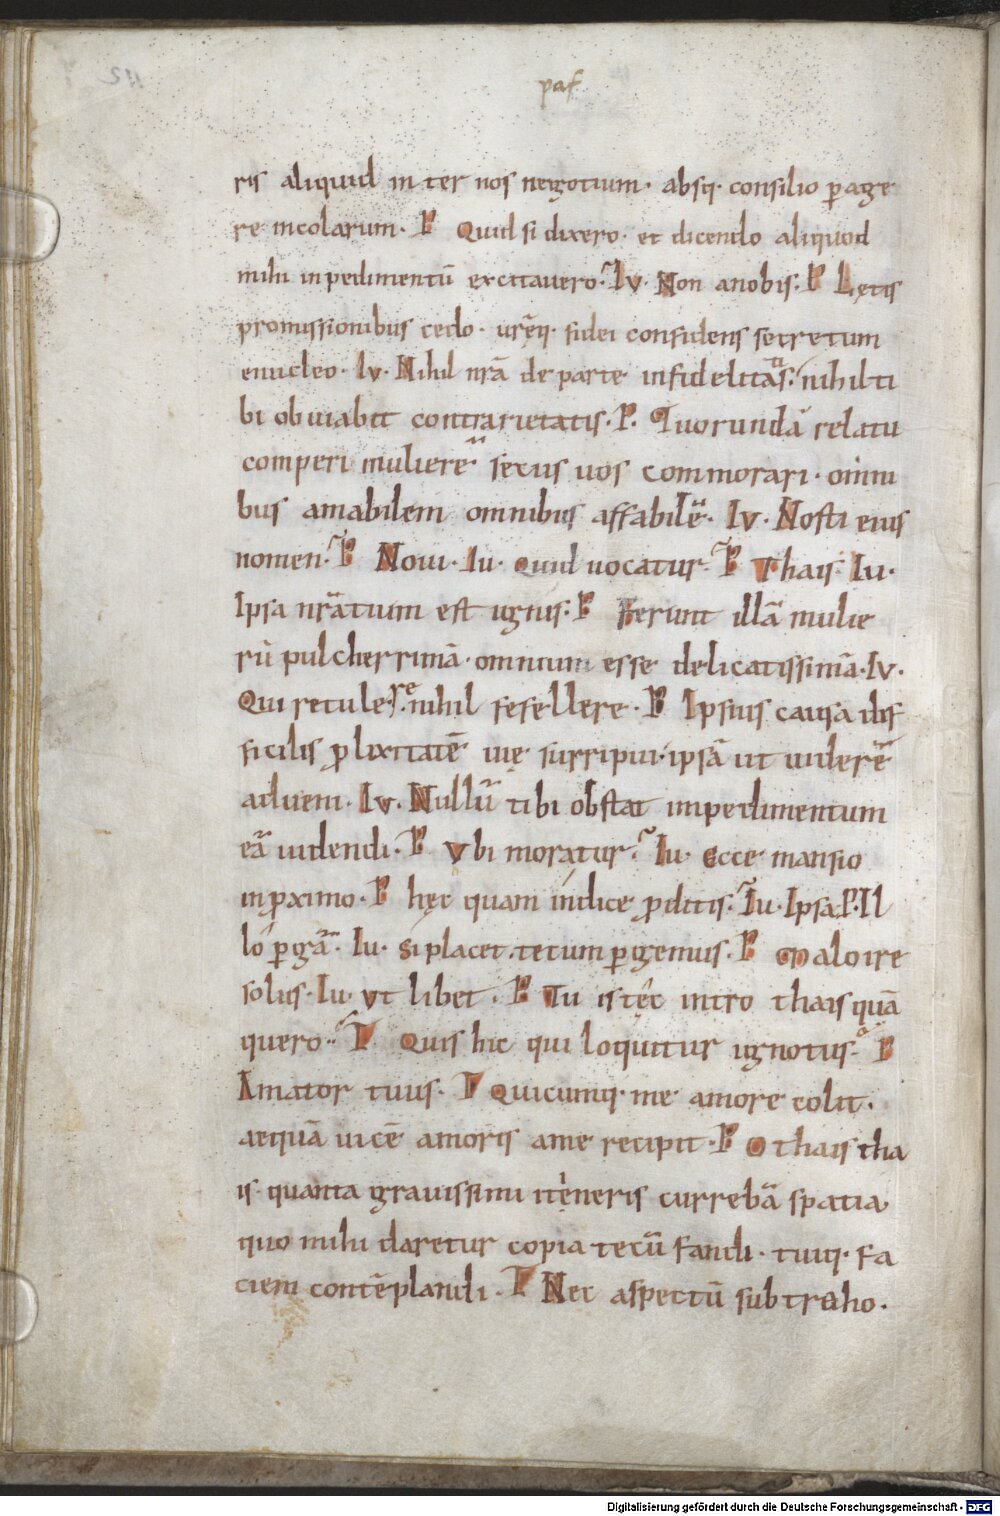 paf
ris aliquid inter nos negotium· absq· consilio ꝑage
re incolarum· P Quid si dixero· et dicendo aliquod
mihi inpedimentū excitauero· Iv· Non anobis· P Lętis
promissionibus cedo· urēq· fidei confidens secretum
enucleo· Iv· Nihil nrā de parte infidelitatis· nihil ti
bi obuiabit contrarietatis· P· Quorundā relatu
comperi mulierē secus uos commorari· omni
bus amabilem omnibus affabilē· Iv· Nosti eius
nomen· P Noui· Iu· Quid uocatur· P Thais· Iu·
Ipsa nrātium est ignis· P Ferunt illā mulie
rū pulcherrimā· omnium esse delicatissimā· Iv·
Qui retulere· nihil fefellere· P Ipsius causa dif
ficilis ꝓlixitatē uię surripui· ipsā ut uiderē
adueni· Iv· Nullū tibi obstat impedimentum
eā uidendi· P Vbi moratur· Iu· Ecce mansio
inꝓximo· P hęc quam indice ꝓditis· Iu· Ipsa· P· Il
lo ꝑgā· Iu· Si placet· tecum ꝑgemus· P Malo ire
solus· Iu· Vt libet· P Tu istęc intro thais quā
quero· T Quis hic qui loquitur ignotus· P
Amator tuus· T Quicumq· me amore colit·
aequā uicē amoris a me recipit· P O thais tha
is· quanta grauissimi itineris currebā spatia
quo mihi daretur copia tecū fandi· tuiq· fa
ciem contēplandi· T Nec aspectū subtraho·
Digitalisierung gefördert durch die Deutsche Forschungsgemeinschaft - DFG